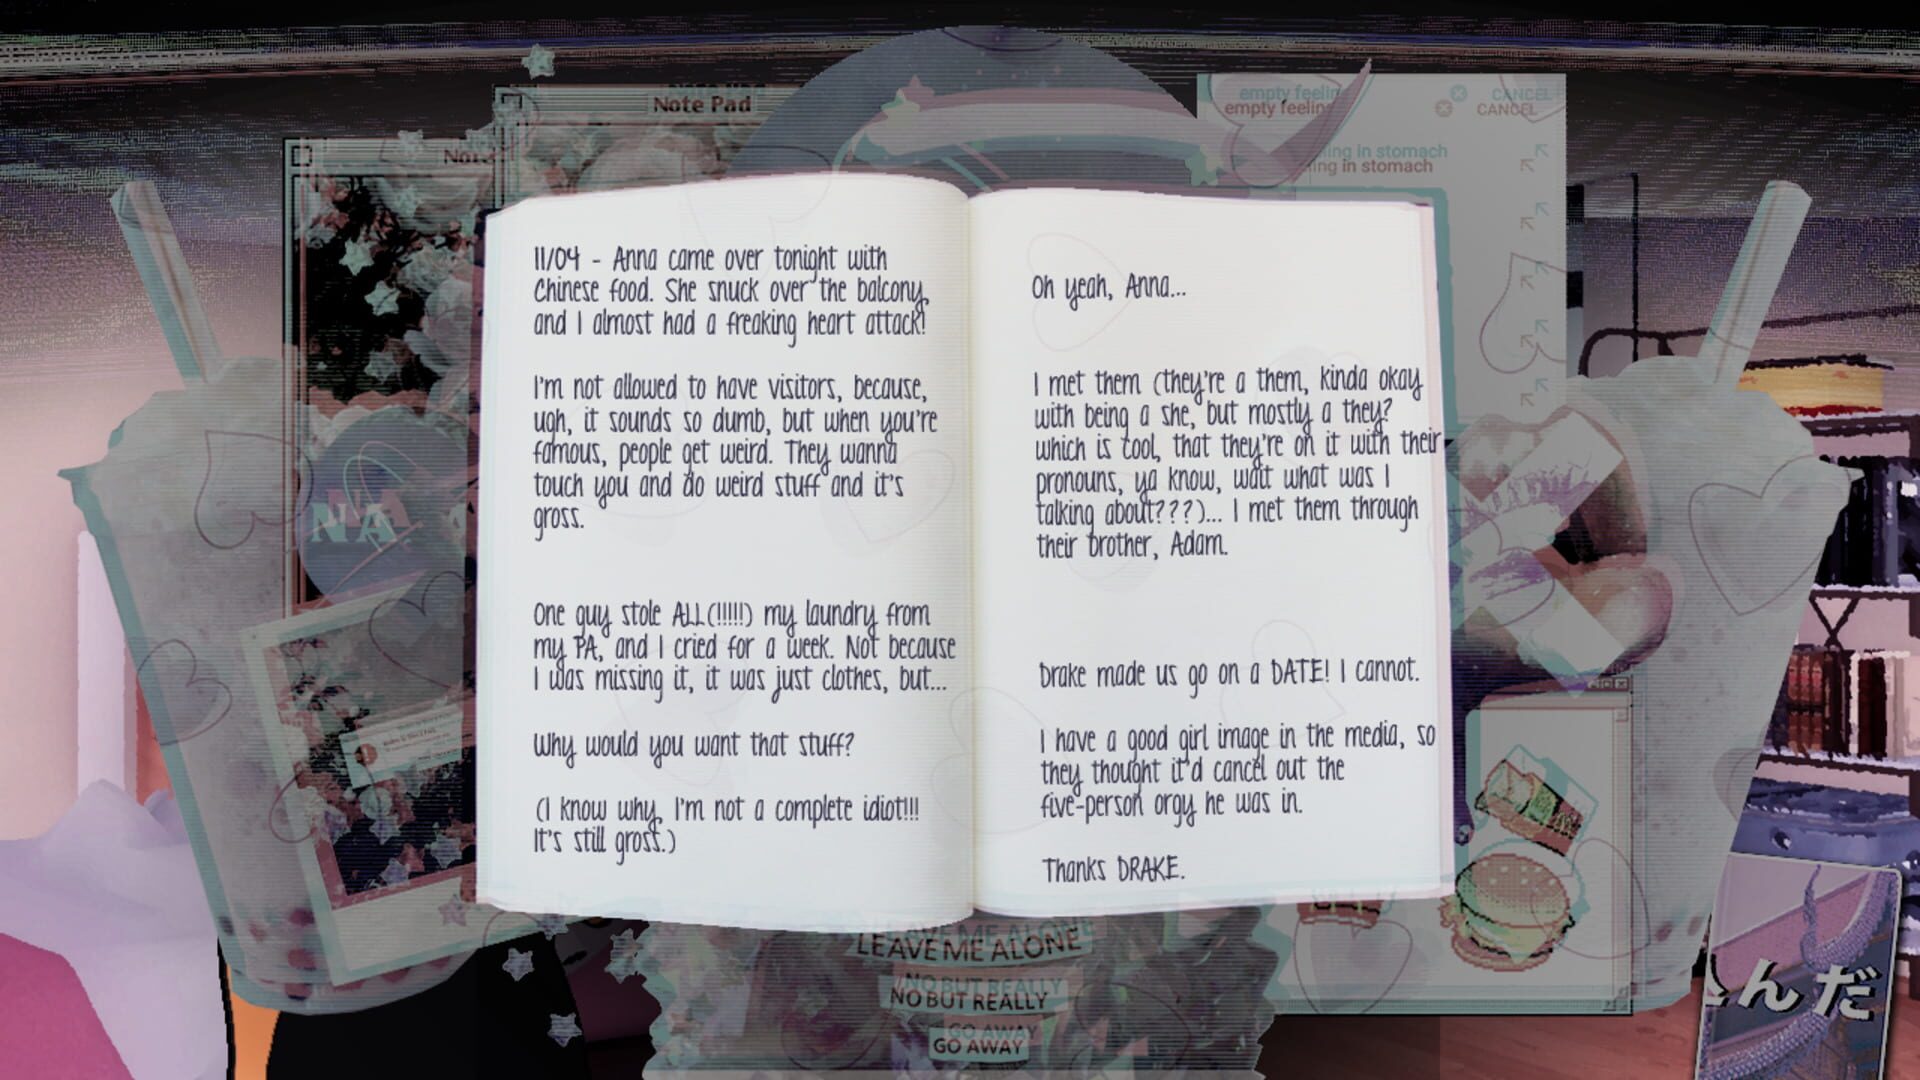 Note Pad
empty feeling
empty feeling
CANCEL
CANCEL
ling in stomach
ling in stomach
11/04 - Anna came over tonight with
Chinese food. She snuck over the balcony,
and I almost had a freaking heart attack!
I'm not allowed to have visitors, because,
ugh, it sounds so dumb, but when you're
famous, people get weird. They wanna
touch you and do weird stuff and it's
gross.
One guy stole ALL(!!!!!) my laundry from
my PA, and I cried for a week. Not because
I was missing it, it was just clothes, but...
Why would you want that stuff?
(I know why, I'm not a complete idiot!!!
It's still gross.)
Oh yeah, Anna...
I met them (they're a them, kinda okay
with being a she, but mostly a they?
which is cool, that they're on it with their
pronouns, ya know, wait what was I
talking about???)... I met them through
their brother, Adam.
Drake made us go on a DATE! I cannot.
I have a good girl image in the media, so
they thought it'd cancel out the
five-person orgy he was in.
Thanks DRAKE.
LEAVE ME ALONE
LEAVE ME ALONE
NO BUT REALLY
NO BUT REALLY
GO AWAY
GO AWAY
んだ